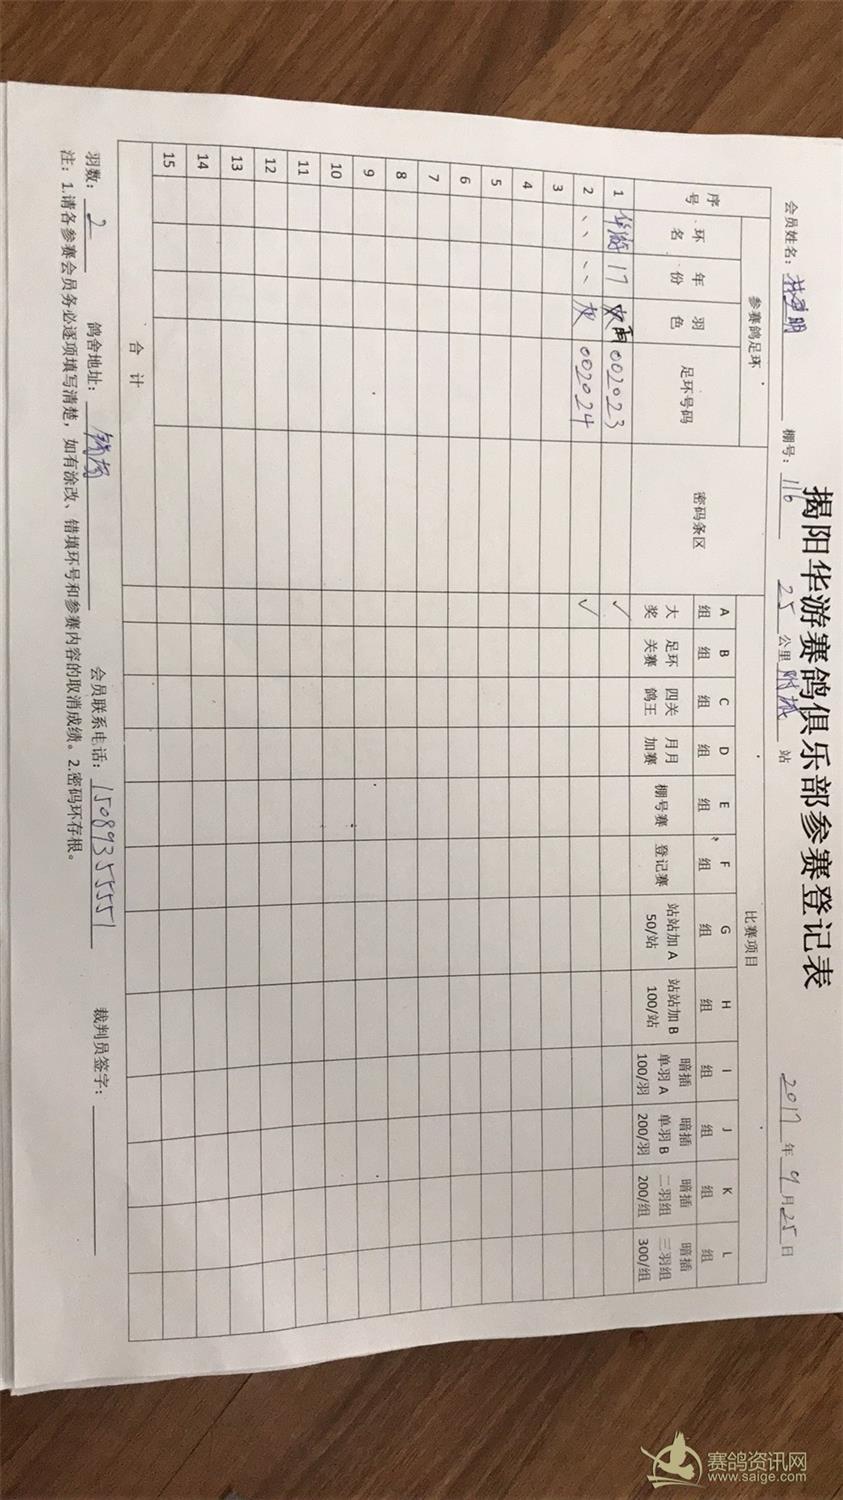 揭阳华游赛鸽俱乐部参赛登记表
会员姓名： 棚号：116 25公里附城站 2017年9月25日
序号 参赛鸽足环 密码条区 比赛项目
环名 年份 羽色 足环号码
A组 B组 C组 D组 E组 F组 G组 H组 I组 J组 K组 L组
大奖 足环关赛 四关鸽王 月月加赛 棚号赛 登记赛 站站加A 50/站 站站加B 100/站 暗插单羽A 100/羽 暗插单羽B 200/羽 暗插二羽组 200/组 暗插三羽组 300/组
1 华游 17 雨 002023 ✓
2 、、 、、 灰 002024 ✓
3
4
5
6
7
8
9
10
11
12
13
14
15
合计
羽数：2 鸽舍地址： 会员联系电话：15089355551 裁判员签字：
注：1.请各参赛会员务必逐项填写清楚，如有涂改、错填环号和参赛内容的取消成绩。2.密码环存根。
赛鸽资讯网
www.saige.com